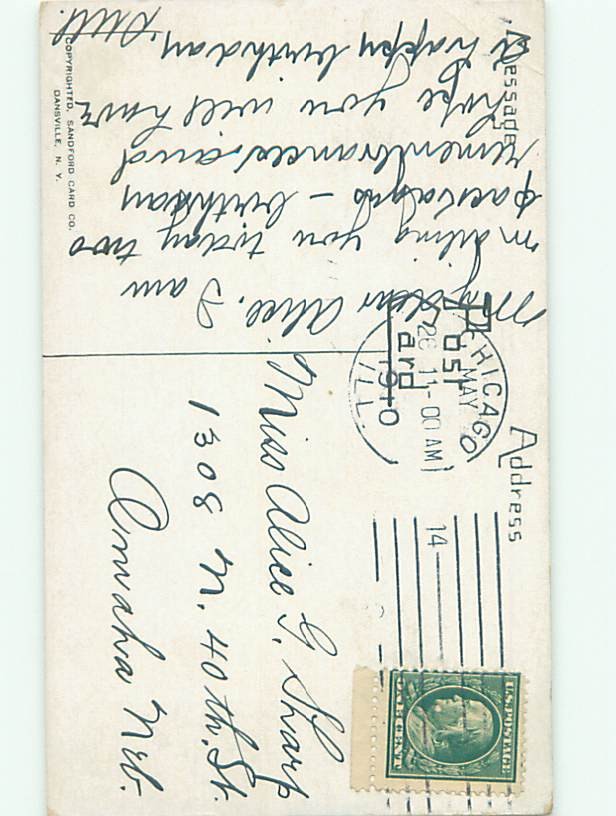 Message
My dear Alice. I am
mailing you today two
packages - birthday
remembrances and
hope you will have
a happy birthday.
COPYRIGHTED, SANDFORD CARD CO.
DANSVILLE, N. Y.
Post
Card
CHICAGO
MAY
26 11-00 AM
1910
ILL.
14
Address
Miss Alice G. Sharp
1308 N. 40th. St.
Omaha Neb.
U.S. POSTAGE
ONE CENT